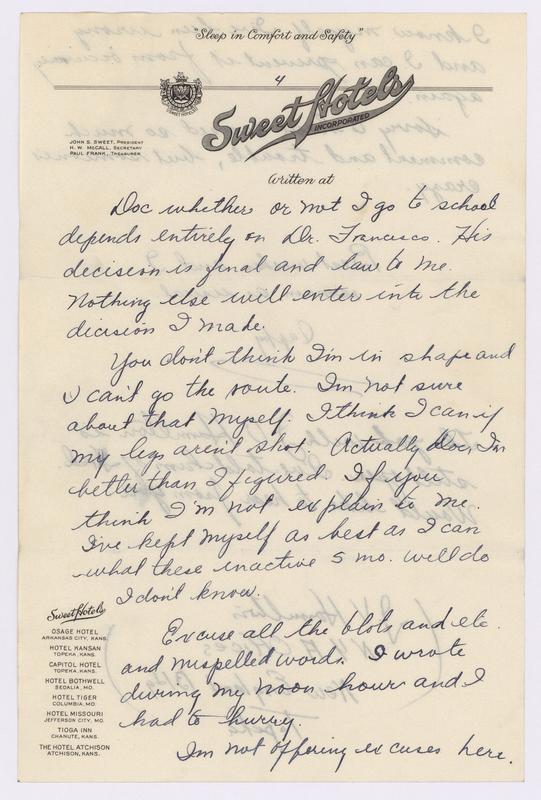 "Sleep in Comfort and Safety"
4
Sweet Hotels
INCORPORATED
SWEET HOTELS
JOHN S. SWEET, PRESIDENT
H. W. McCALL, SECRETARY
PAUL FRANK, TREASURER
Written at
Doc whether or not I go to school
depends entirely on Dr. Francisco. His
decision is final and law to me.
Nothing else will enter into the
dicision I made.
You don't think I'm in shape and
I can't go the route. I'm not sure
about that myself. I think I can if
my legs aren't shot. Actually Doc, I'm
better than I figured. If you
think I'm not explain to me.
I've kept myself as best as I can
what these inactive 5 mo. will do
I don't know.
Excuse all the blots and etc.
and mispelled words. I wrote
during my noon hour and I
had to hurry.
I'm not offering excuses here.
Sweet Hotels
OSAGE HOTEL
ARKANSAS CITY, KANS.
HOTEL KANSAN
TOPEKA, KANS.
CAPITOL HOTEL
TOPEKA, KANS.
HOTEL BOTHWELL
SEDALIA, MO.
HOTEL TIGER
COLUMBIA, MO.
HOTEL MISSOURI
JEFFERSON CITY, MO.
TIOGA INN
CHANUTE, KANS.
THE HOTEL ATCHISON
ATCHISON, KANS.